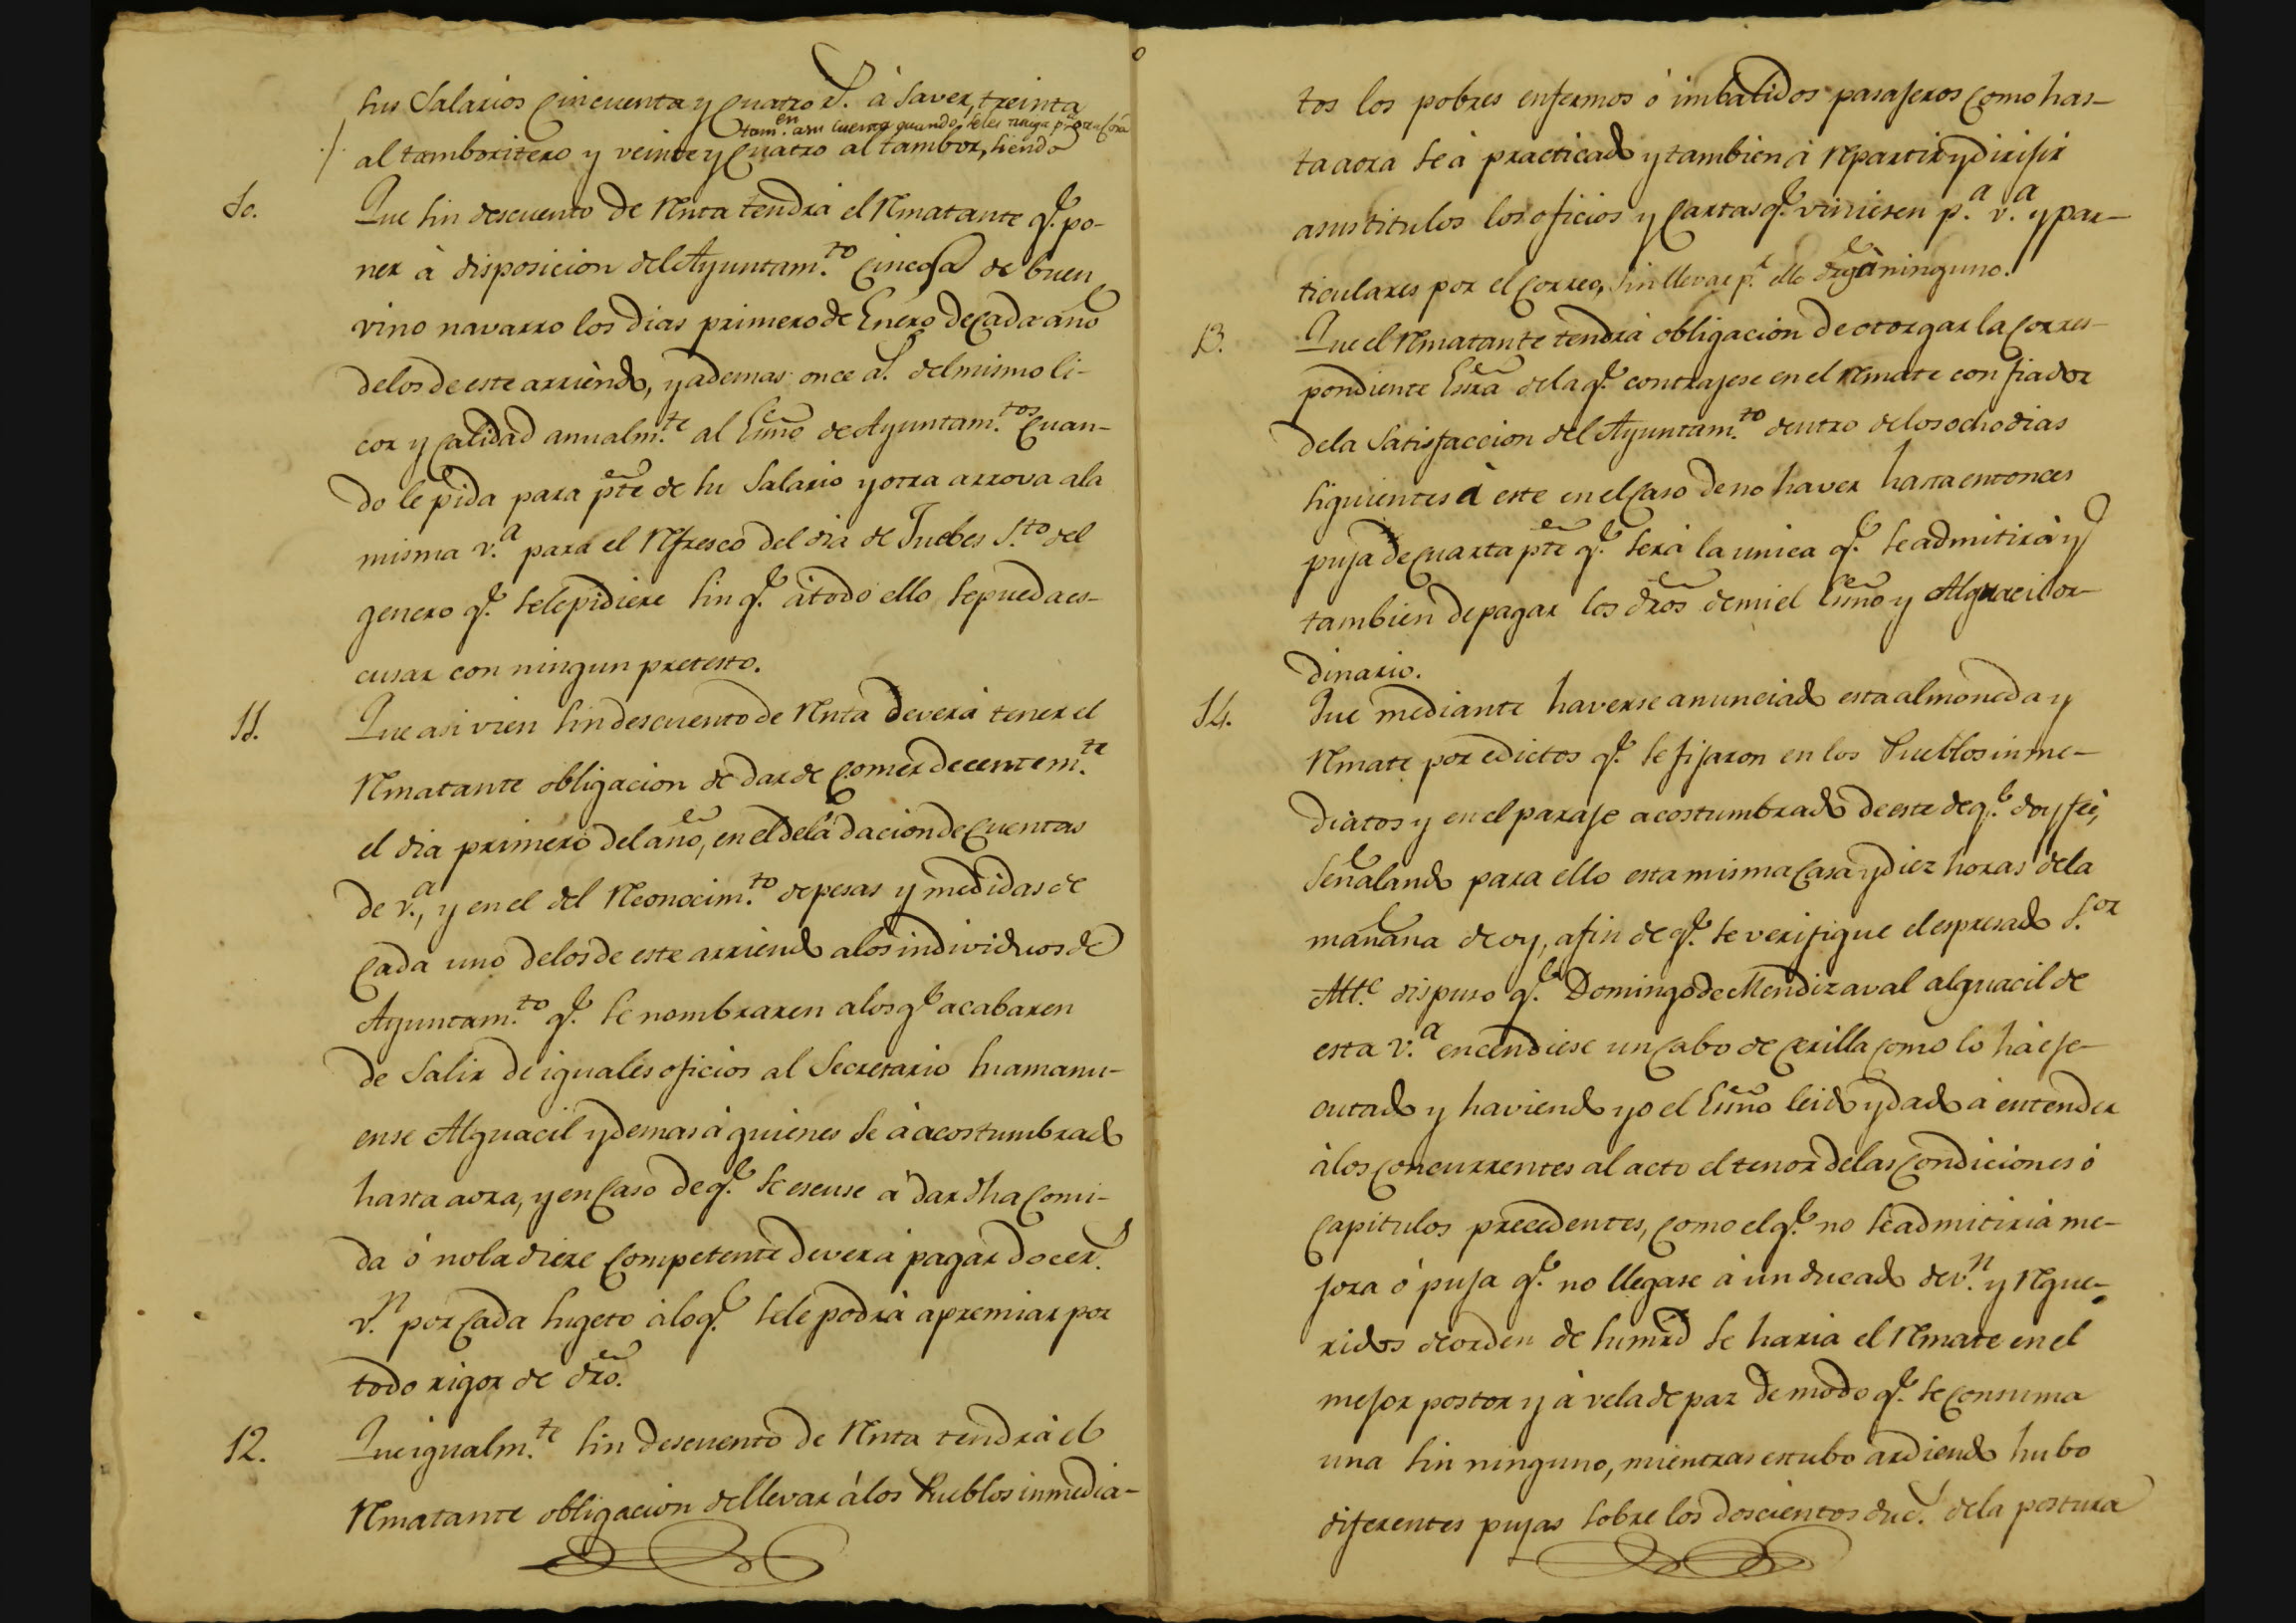 sus Salarios Cincuenta y Cuatro r.s à saver, treinta
tam.en a su cuenta quando se les traiga p.a otra cosa
al tamboritero y veinte y Cuatro al tambor, siendo
10. Que sin descuento de Renta tendrá el Rematante q.e po-
ner à disposicion del Ayuntam.to Cinco a.s de buen
vino navarro los dias primero de Enero de Cada año
de los de este arriendo, y ademas once a.s del mismo li-
cor y Calidad anualm.te al Essno de Ayuntam.tos Cuan-
do le pida para pte de su Salario y otra arrova a la
misma v.a para el Refresco del dia de Juebes S.to del
genero q.e se le pidiere sin q.e à todo ello se pueda es-
cusar con ningun pretesto.
11. Que asi vien sin descuento de Renta deverá tener el
Rematante obligacion de dar de Comer decentem.te
el dia primero del año, en el de la dacion de Cuentas
de v.a, y en el del Reconocim.to de pesas y medidas de
Cada uno de los de este arriendo a los individuos de
Ayuntam.to q.e se nombraren a los q.e acabaren
de Salir de iguales oficios al Secretario su amanu-
ense Alguacil y demas à quienes se à acostumbrado
hasta aora, y en Caso de q.e se escuse à dar dha Comi-
da ó no la diere Competente deverá pagar doce r.s
v.n por Cada sugeto à lo q.e se le podrà apremiar por
todo rigor de dro.
12. Que igualm.te sin descuento de Renta tendrà el
Rematante obligacion de llevar à los Pueblos inmedia-
tos los pobres enfermos ó imbalidos pasajeros Como has-
ta aora se à practicado y tambien à Repartir y dirijir
a sus titulos los oficios y Cartas q.e vinieren p.a v.a y par-
ticulares por el Correo, sin llevar p.r ello ninguno.
13. Que el Rematante tendrà obligacion de otorgar la Corres-
pondiente Essra de la q.e contrajese en el Remate con fiador
de la Satisfaccion del Ayuntam.to dentro de los ocho dias
siguientes à este en el Caso de no haver hasta entonces
puja de Cuarta pte q.e serà la unica q.e se admitirà y
tambien de pagar los dros de mi el Essno y Alguacil or-
dinario.
14. Que mediante haverse anunciado esta almoneda y
Remate por edictos q.e se fijaron en los Pueblos inme-
diatos y en el paraje acostumbrado de este de q.e doy feé,
Señalando para ello esta misma Casa y diez horas de la
mañana de oy, a fin de q.e se verifique el espresado S.or
Alt.e dispuso q.e Domingo de Mendizaval alguacil de
esta v.a encendiese un Cabo de Cerilla Como lo hà eje-
cutado y haviendo yo el Essno leido y dado à entender
à los Concurrentes al acto el tenor de las Condiciones ó
Capitulos precedentes, Como el q.e no se admitiria me-
jora ó puja q.e no llegase à un ducado de v.n y Reque-
ridos de orden de su mrd se haria el Remate en el
mejor postor y à vela de paz de modo q.e se Consuma
una sin ninguno, mientras estubo ardiendo hubo
diferentes pujas sobre los doscientos duc.s de la postura